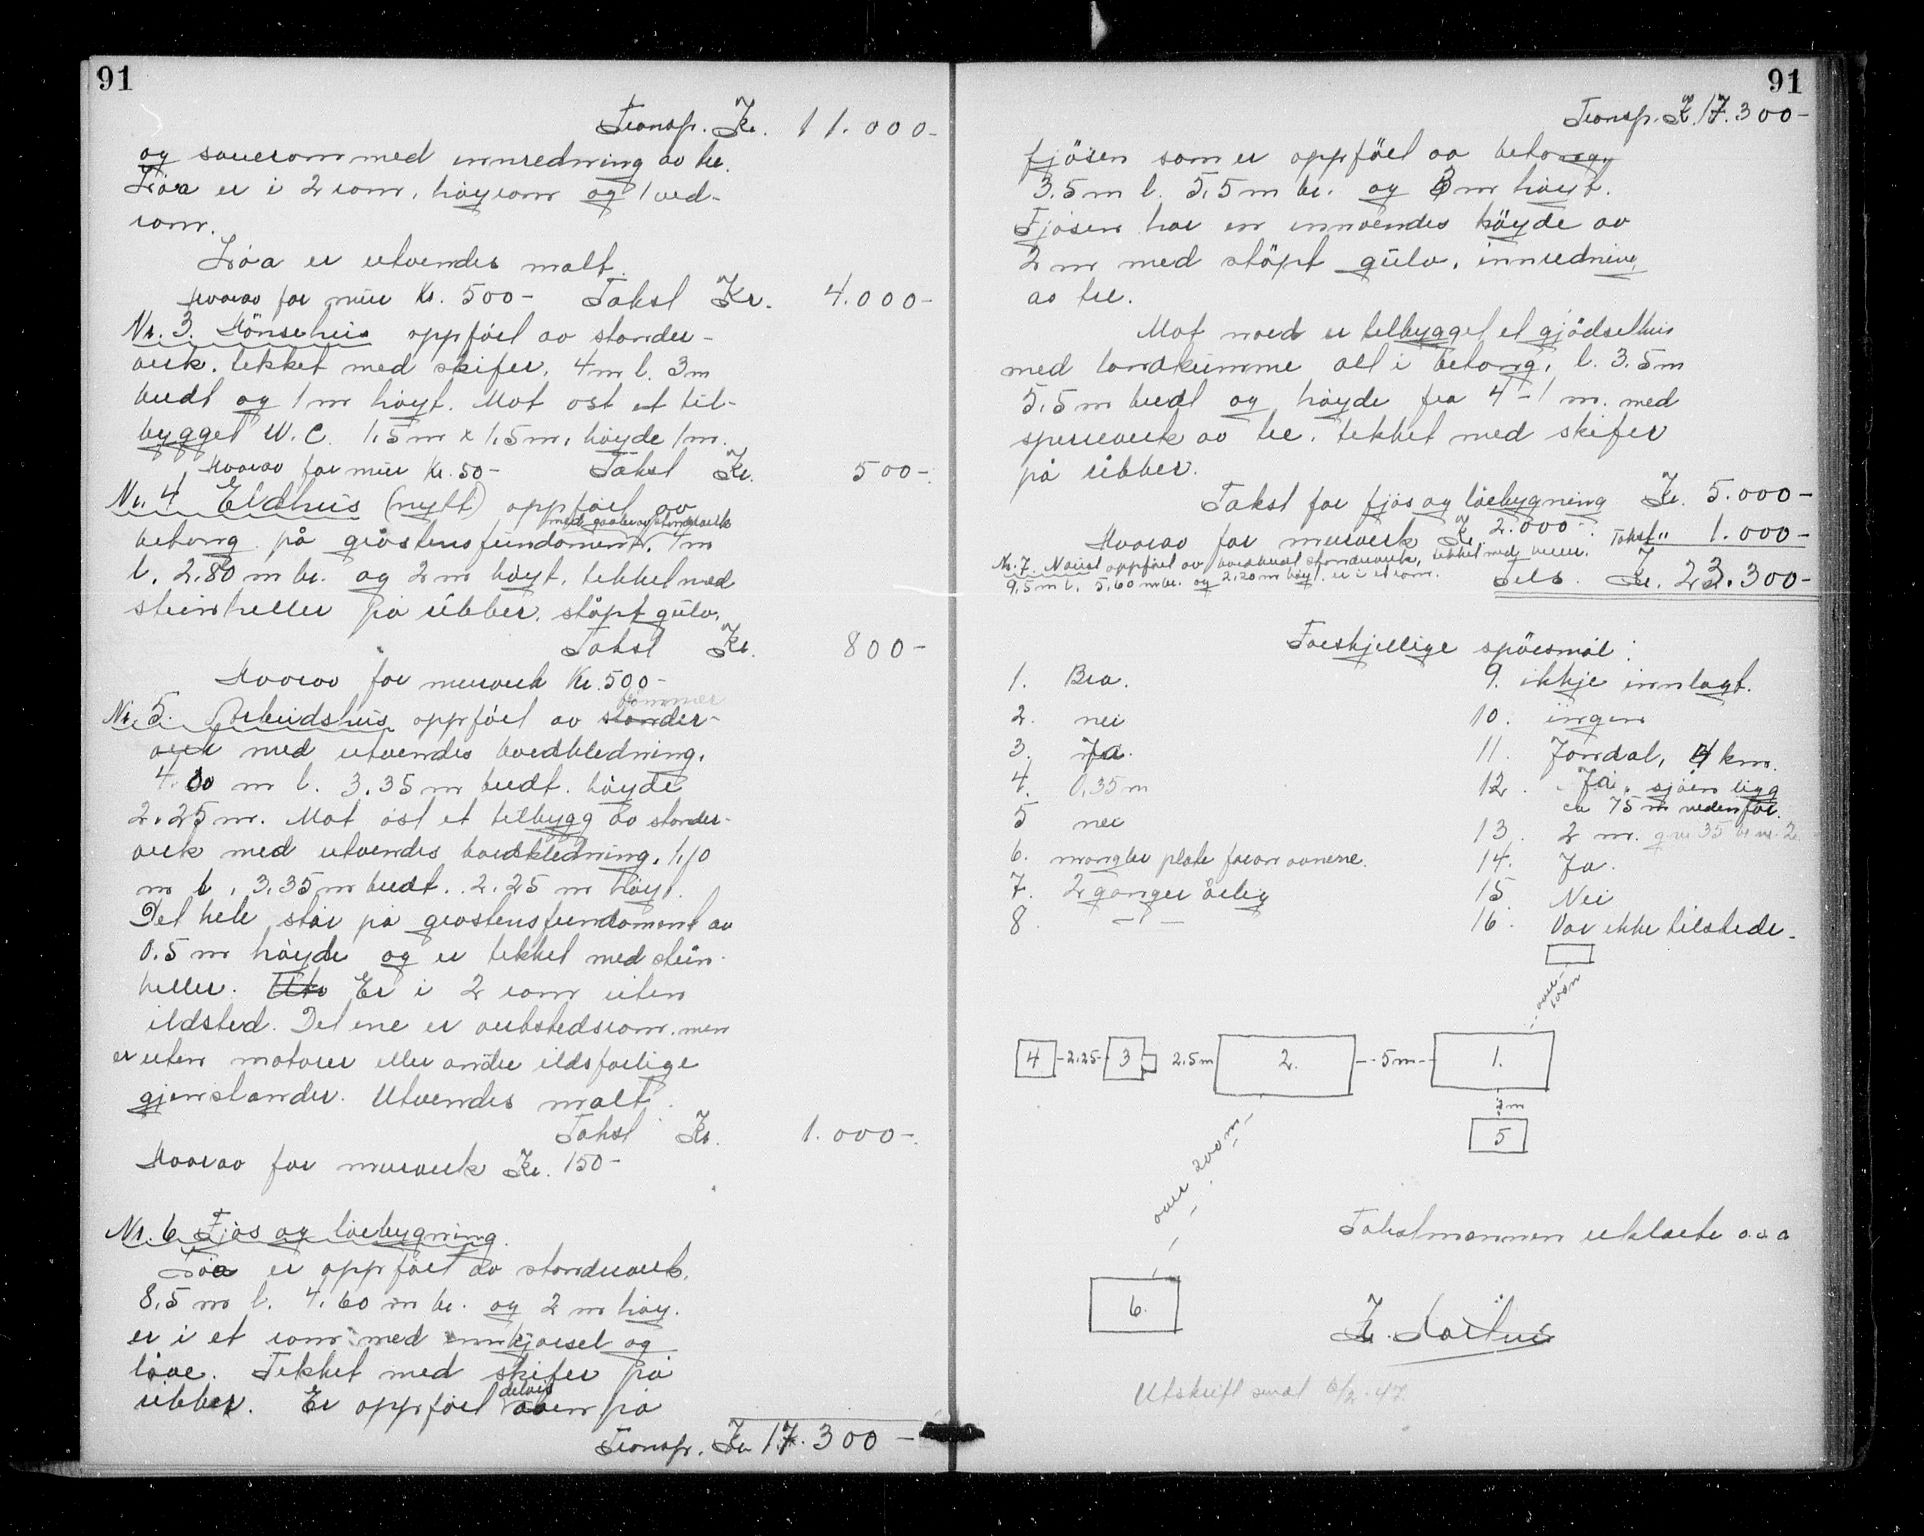 91
Transp. Kr. 11.000-
og sauerom med innredning av tre.
Löa er i 2 rom, höyrom og 1 ved-
rom.
Löa er utvendes malt.
Hvorav for mur Kr. 500- Takst Kr. 4.000-
Nr. 3. Hönsehus oppföret av stender-
verk. tekket med skifer. 4 m l. 3 m
bredt og 1 m höyt. Mot ost et til-
bygget W.C. 1,5 m x 1,5 m, höyde 1 m.
Hvorav for mur Kr. 50- Takst Kr. 500-
Nr. 4 Eldhus (nytt) oppföret av
med gavler av stenderverk
betong på gråstensfundament. 1 m
l. 2.80 m br. og 2 m höyt, tekket med
steinheller på ubber. stöpt gulv.
Takst Kr. 800-
Hvorav for murverk Kr. 500-
tömmer
Nr. 5. Arbeidshus oppföret av stender-
verk med utvendes bordkledning.
4.00 m l. 3.35 m bredt. höyde
2.25 m. Mot öst et tilbygg av stender-
verk med utvendes bordkledning. 1,10
m l, 3.35 m bredt. 2.25 m höyt.
Det hele står på gråstensfundament av
0.5 m höyde og er tekket med stein-
heller. Er i 2 rom uten
ildsted. Det ene er verkstedsrom. men
er uten motorer eller andre ildsfarlige
gjenstander. Utvendes malt.
Takst Kr. 1.000-
Hvorav for murverk Kr. 150-
Nr. 6 Fjös og löebygning.
Löa er oppföret av stenderverk.
8.5 m l. 4.60 m br. og 2 m höy.
er i et rom med innkjörsel og
låve. Tekket med skifer på
ubber. Er oppföret delvis oven på
Transp. Kr 17.300-
91
Transp. Kr. 17.300-
fjösen som er oppfört av betong,
3.5 m l. 5.5 m br. og 3 m höyt.
Fjösen har en innvendes höyde av
2 m med stöpt gulv. innredning
av tre.
Mot nord er tilbygget et gjödselhus
med landkumme alt i betong. l. 3.5 m
5.5 m bredt og höyde fra 4-1 m. med
sperreverk av tre. tekket med skifer
på ubber.
Takst for fjös og löebygning Kr. 5.000-
Hvorav for murverk Kr. 2.000- Takst " 1.000-
Nr. 7. Naust oppföret av bordkledt stenderverk, tekket med
9,5 m l. 5,60 m br. og 2,20 m höyt. er i et rom.
Tils. Kr. 23.300-
Forskjellige spörsmål:
1. Bra.
2. nei
3. Ja.
4. 0.35 m
5 nei
6. mangler plate foran ovnene.
7. 2 ganger årlig
8. -"-
9. ikkje innlagt.
10. ingen
11. Jondal, 4 km.
12. Ja, sjöen ligg
ca 75 m nedenfor.
13. 2 m. g.nr. 35 br.nr. 2.
14. Ja.
15 Nei
16. Var ikke tilstede.
over 100 m
4 -2.25- 3 2.5 m 2. -5 m- 1.
5
over 200 m
6.
Takstmennen erklærte o.s.a
Utskrift sendt 6/2-47